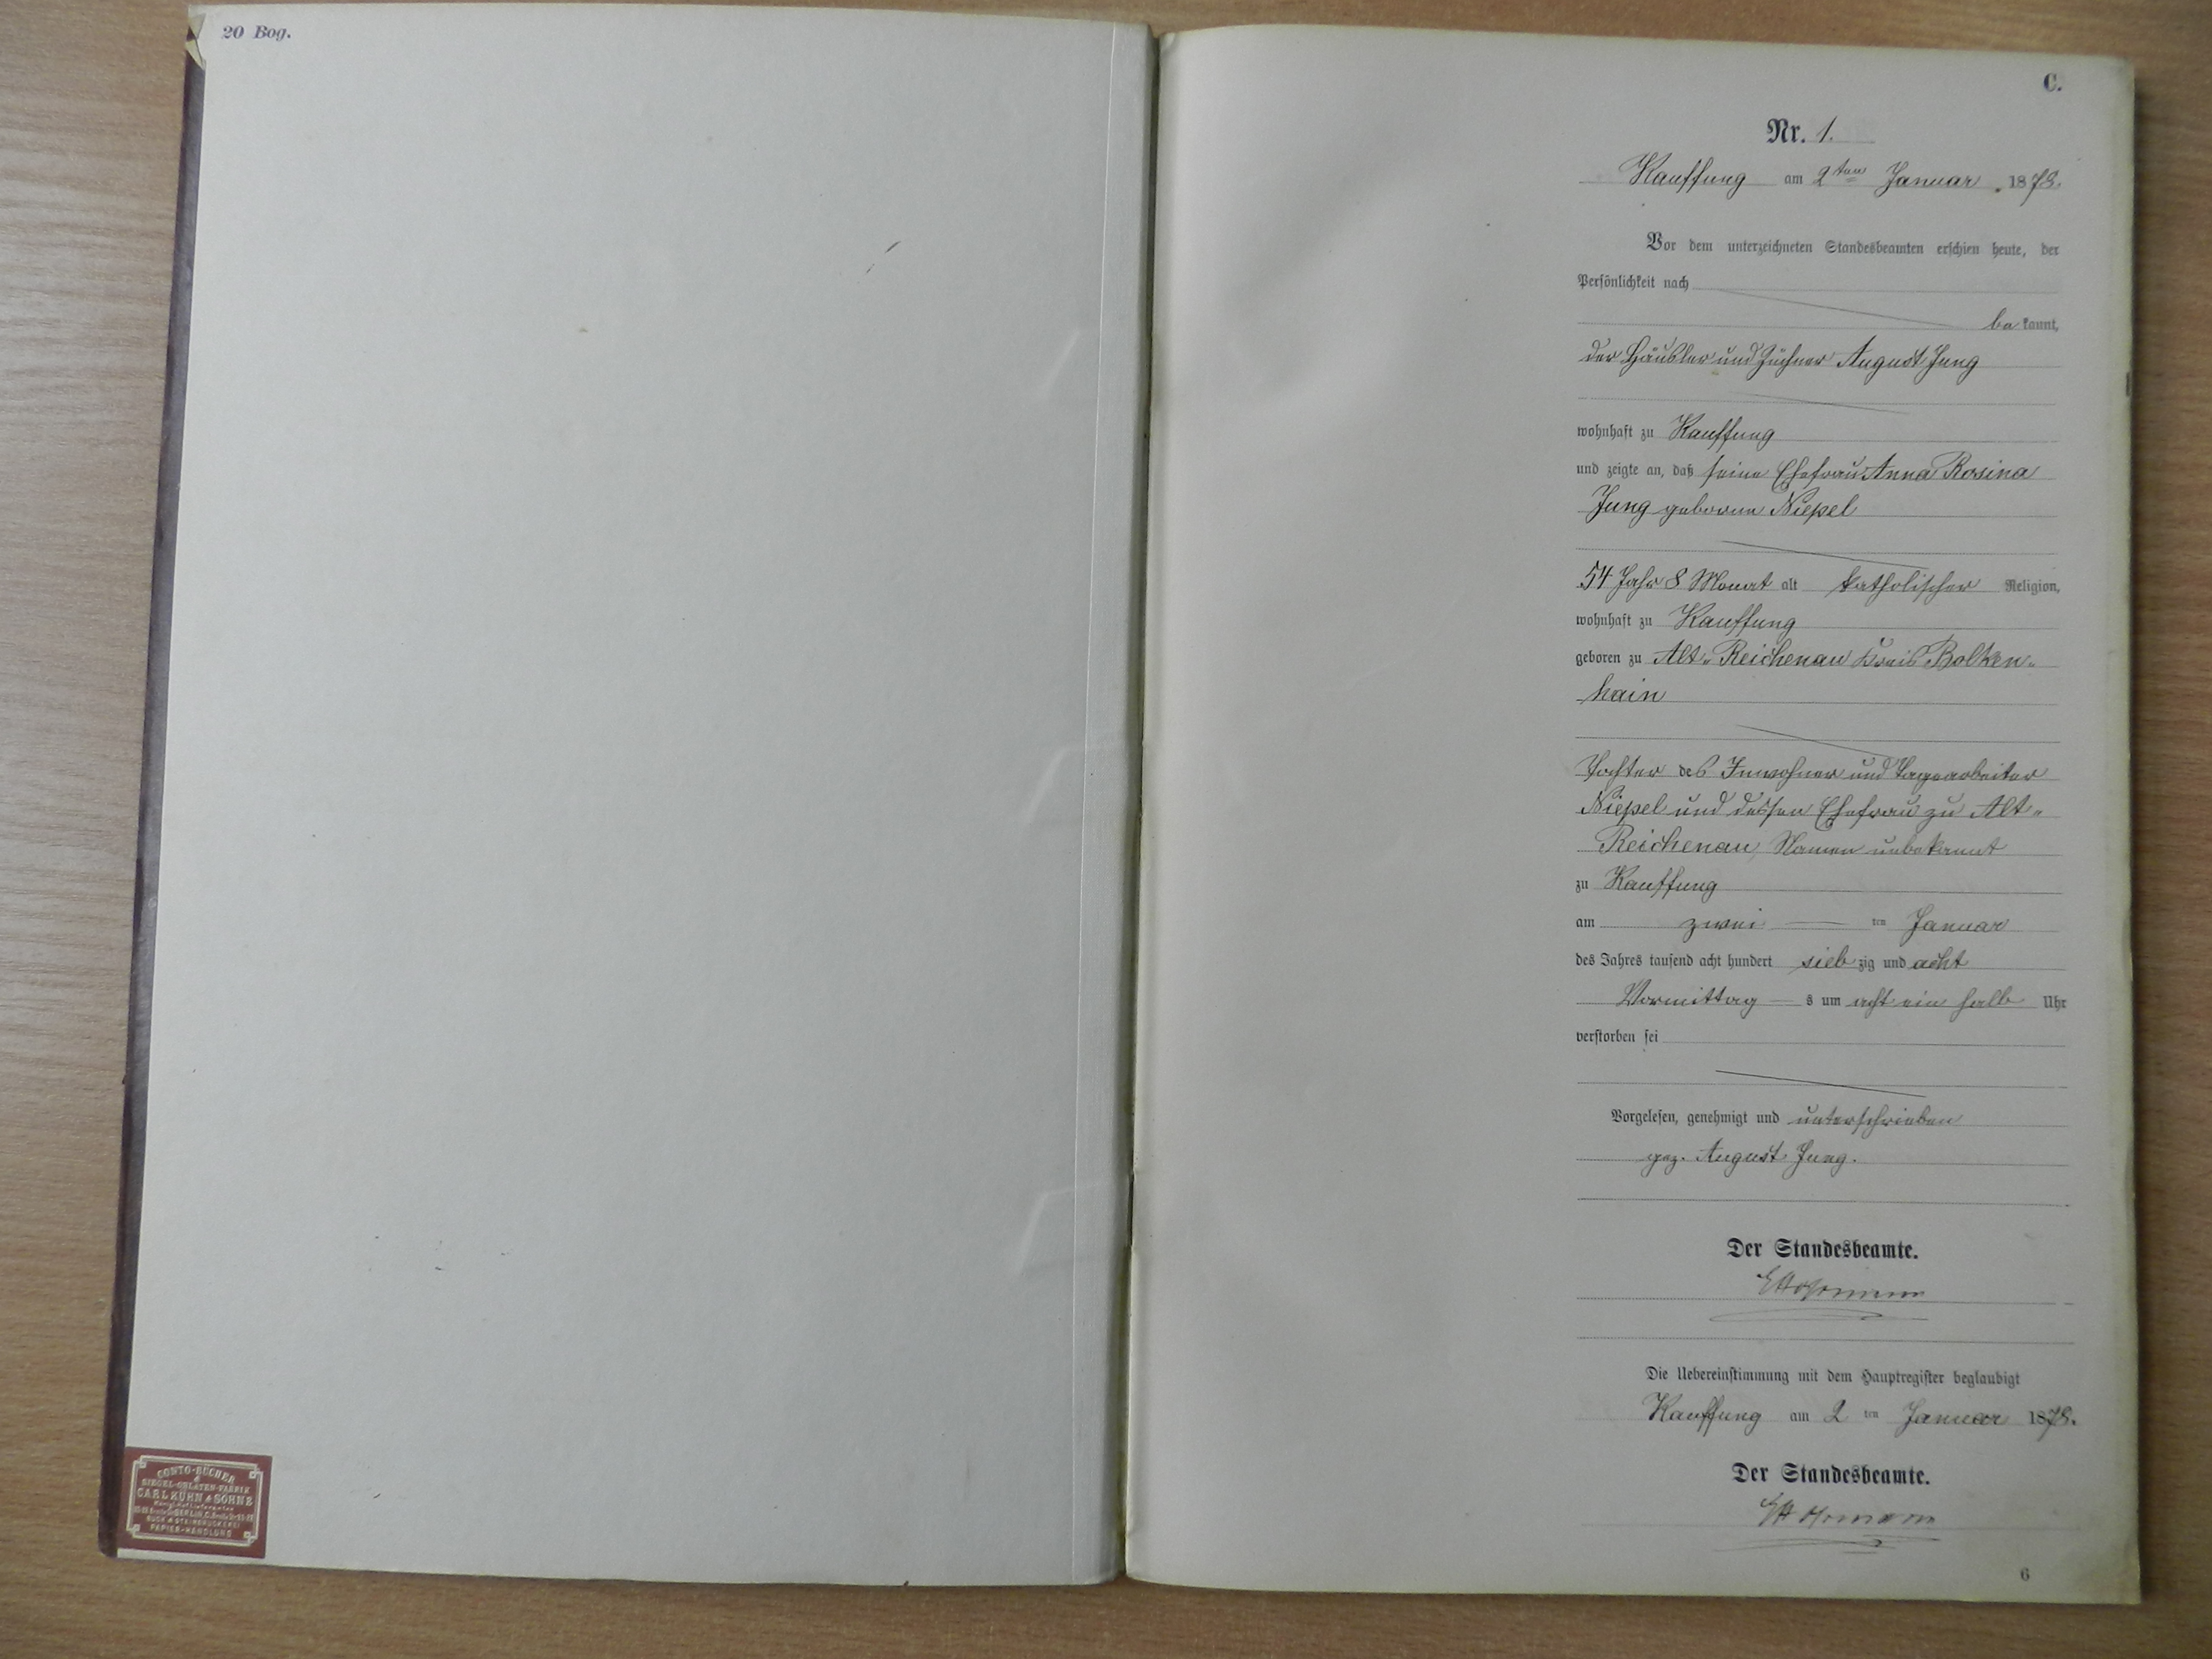 20 Bog.
CONTO-BÜCHER
&
SIEGEL-OBLATEN-FABRIK
CARL KÜHN & SÖHNE
BERLIN C.
BUCH & STEINDRUCKEREI
PAPIER-HANDLUNG
C.
Nr. 1.
Kauffung am 2ten Januar 1878.
Vor dem unterzeichneten Standesbeamten erschien heute, der
Persönlichkeit nach
bekannt,
der Häusler und Züchner August Jung
wohnhaft zu Kauffung
und zeigte an, daß seine Ehefrau Anna Rosina
Jung geborne Niepel
54 Jahr 8 Monat alt katholischer Religion,
wohnhaft zu Kauffung
geboren zu Alt-Reichenau Kreis Bolken-
hain
Tochter des Inwohner und Tagearbeiter
Niepel und dessen Ehefrau zu Alt-
Reichenau, Namen unbekannt
zu Kauffung
am zwei ten Januar
des Jahres tausend acht hundert siebzig und acht
Vormittags um acht ein halb Uhr
verstorben sei
Vorgelesen, genehmigt und unterschrieben
gez. August Jung.
Der Standesbeamte.
Die Uebereinstimmung mit dem Hauptregister beglaubigt
Kauffung am 2 ten Januar 1878.
Der Standesbeamte.
6